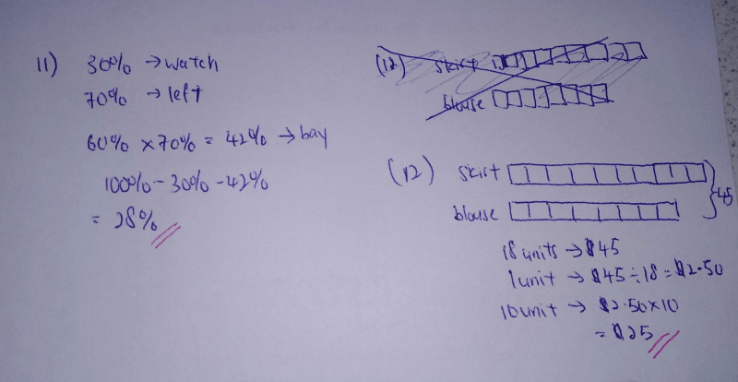 11) 30% → watch
70% → left
60% × 70% = 42% → bay
100% - 30% - 42%
= 28%
(12) skirt
blouse
(12) skirt
blouse
45
18 units → $45
1 unit → $45 ÷ 18 = $2.50
10 unit → $2.50 × 10
= $25